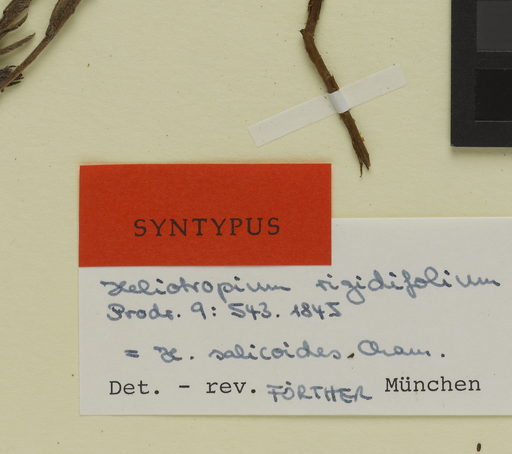 SYNTYPUS
Heliotropium rigidifolium
Prodr. 9: 543. 1845
= H. salicoides Cham.
Det. - rev. FÖRTHER München